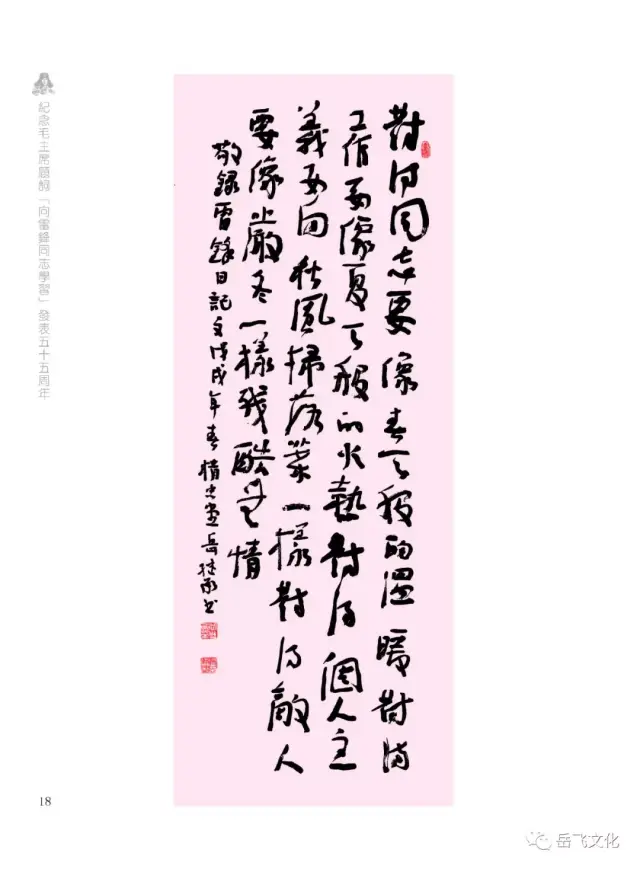 紀念毛主席題詞「向雷鋒同志學習」發表五十五周年
對待同志要像春天般的溫暖對待
工作要像夏天般的火熱對待個人主
義要向秋風掃落葉一樣對待敵人
要像嚴冬一樣殘酷無情
敬錄雷鋒日記文戊戌年春精忠堂岳書
18
岳飞文化